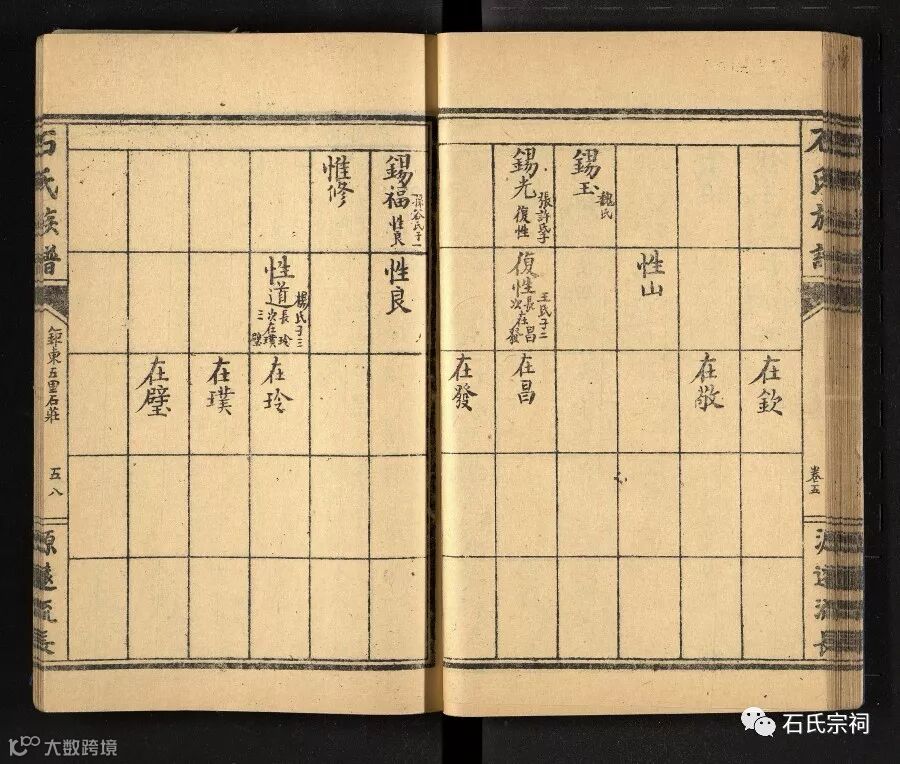 石氏族譜
卷五
源遠流長
在欽
在敬
性山
錫玉
魏氏
錫光
張許氏子
復性
復性
王氏子二
長在昌
次在發
在昌
在發
錫福
谷氏子一
性良
性良
惟修
性道
楊氏子三
長玲
次在璞
三璧
在玲
在璞
在璧
石氏族譜
鉅東五里石莊
五八
源遠流長
石氏宗祠
大数跨境